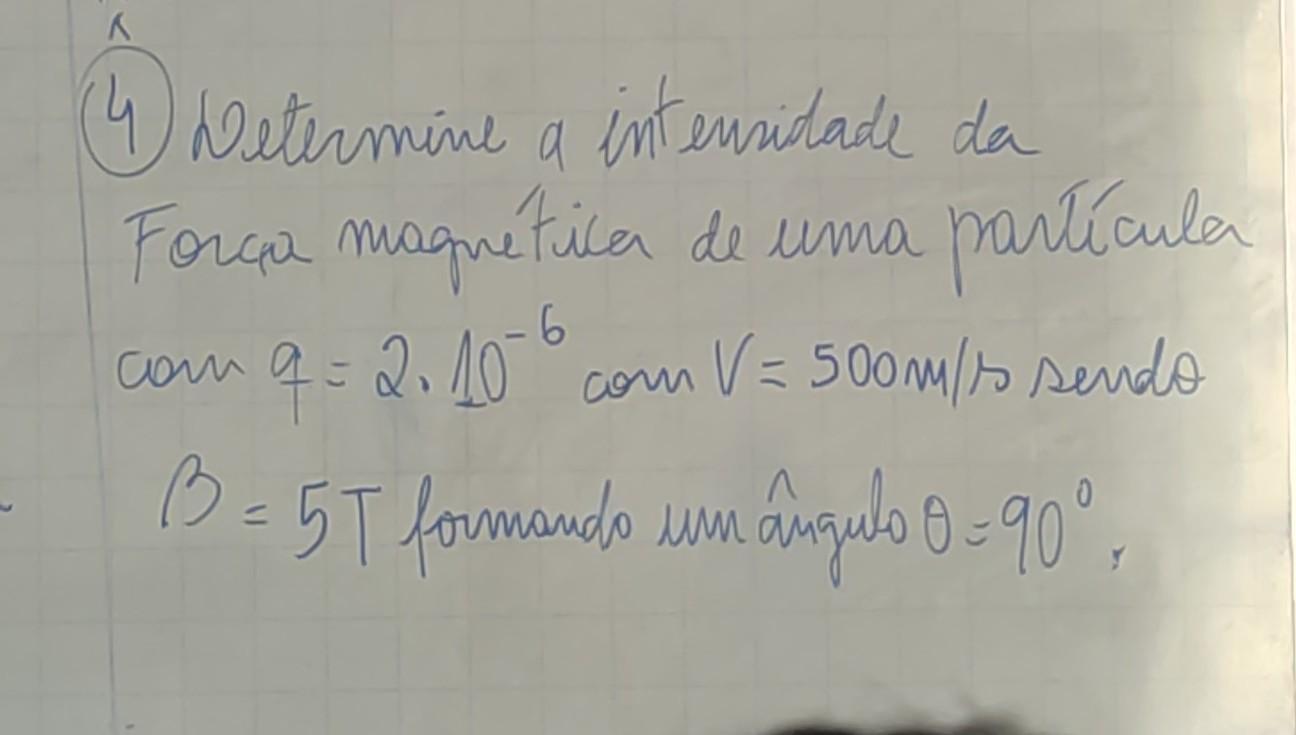 4 Determine a intensidade da
Força magnética de uma partícula
com q = 2.10⁻⁶ com V = 500m/s sendo
B = 5T formando um ângulo θ = 90°.